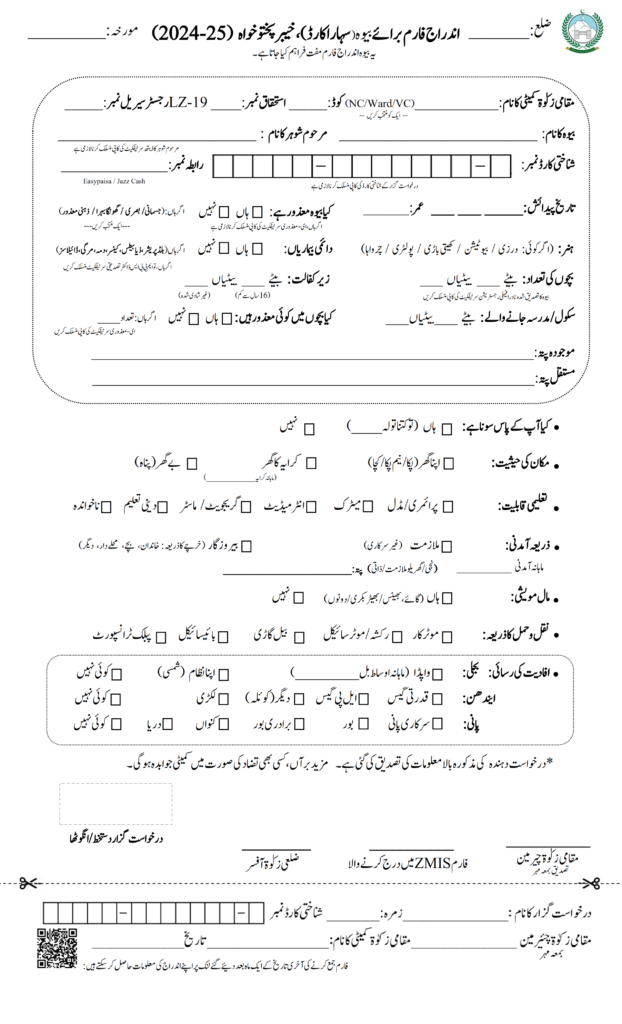 ضلع:________ اندراج فارم برائے بیوہ (سہارا کارڈ)، خیبر پختونخواہ (2024-25) مورخہ:________
یہ بیوہ اندراج فارم مفت فراہم کیا جاتا ہے۔
مقامی زکوٰۃ کمیٹی کا نام:________(NC/Ward/VC) کوڈ:____ استحقاق نمبر:____ LZ-19 رجسٹر سیریل نمبر:____
-- ایک کو منتخب کریں --
بیوہ کا نام: ________ مرحوم شوہر کا نام : ________
مرحوم شوہر کا فوتگی سرٹیفکیٹ کی کاپی منسلک کرنا لازمی ہے
شناختی کارڈ نمبر: □□□□□–□□□□□□□–□ رابطہ نمبر:________
درخواست گزار کے شناختی کارڈ کی کاپی منسلک کرنا لازمی ہے Easypaisa / Jazz Cash
تاریخ پیدائش: ____ ____ ____ عمر:____ کیا بیوہ معذور ہے: □ ہاں □ نہیں اگر ہاں: (جسمانی / بصری / گونگا بہرا / ذہنی معذور)
اگر ہاں، ای-معذوری سرٹیفکیٹ کی کاپی منسلک کرنا لازمی ہے ----ایک منتخب کریں----
ہنر: (اگر کوئی: درزی / بیوٹیشن / کھیتی باڑی / پولٹری / چرواہا) دائمی بیماریاں: □ ہاں □ نہیں اگر ہاں (بلڈ پریشر، ذیابیطس، کینسر، دمہ، مرگی، ڈائیلاسز)
اگر ہاں، تو ایم بی بی ایس ڈاکٹر تصدیقی سرٹیفکیٹ منسلک کریں
بچوں کی تعداد: بیٹے ____ بیٹیاں ____ زیر کفالت: بیٹے ____ بیٹیاں ____
بیوہ کا تصدیق شدہ نادرا فیملی رجسٹریشن سرٹیفکیٹ کی کاپی منسلک کریں (16 سال سے کم) (غیر شادی شدہ)
سکول/مدرسہ جانے والے: بیٹے ____ بیٹیاں____ کیا بچوں میں کوئی معذور ہیں: □ ہاں □ نہیں اگر ہاں: تعداد____
ای-معذوری سرٹیفکیٹ کی کاپی منسلک کریں
موجودہ پتہ:________
مستقل پتہ:________
• کیا آپ کے پاس سونا ہے: □ ہاں (تو کتنا تولہ ____) □ نہیں
• مکان کی حیثیت: □ اپنا گھر (پکا/نیم پکا/کچا) □ کرایہ کا گھر □ بے گھر (پناہ)
(ماہانہ کرایہ ________)
• تعلیمی قابلیت: □ پرائمری/مڈل □ میٹرک □ انٹرمیڈیٹ □ گریجویٹ/ ماسٹر □ دینی تعلیم □ ناخواندہ
• ذریعہ آمدنی: □ ملازمت (غیر سرکاری) □ بیروزگار (خرچے کا ذریعہ: خاندان، بچے، محلے دار، دیگر)
ماہانہ آمدنی ________ (نجی/گھریلو ملازمت/ذاتی) پتہ:________
• مال مویشی: □ ہاں (گائے، بھینس/بھیڑ بکری/دونوں) □ نہیں
• نقل و حمل کا ذریعہ: □ موٹر کار □ رکشہ/موٹر سائیکل □ بیل گاڑی □ بائیسائیکل □ پبلک ٹرانسپورٹ
• افادیت کی رسائی: بجلی: □ واپڈا (ماہانہ اوسط بل________) □ اپنا نظام (شمسی) □ کوئی نہیں
ایندھن: □ قدرتی گیس □ ایل پی گیس □ دیگر (کوئلہ) □ لکڑی □ کوئی نہیں
پانی: □ سرکاری پانی □ بور □ برادری بور □ کنواں □ دریا □ کوئی نہیں
*درخواست دہندہ کی مذکورہ بالا معلومات کی تصدیق کی گئی ہے۔ مزید برآں، کسی بھی تضاد کی صورت میں کمیٹی جوابدہ ہوگی۔
درخواست گزار دستخط/انگوٹھا
مقامی زکوٰۃ چیرمین فارم ZMIS میں درج کرنے والا ضلعی زکوٰۃ آفسر
تصدیق بمعہ مہر
درخواست گزار کا نام : ________ زمرہ: ____ شناختی کارڈ نمبر □□□□□–□□□□□□□–□
مقامی زکوٰۃ چیئرمین ________ مقامی زکوٰۃ کمیٹی کا نام:________ تاریخ ________
بمعہ مہر
فارم جمع کرنے کی آخری تاریخ کے ایک ماہ بعد دیئے گئے لنک پر اپنے اندراج کی معلومات حاصل کر سکتے ہیں: